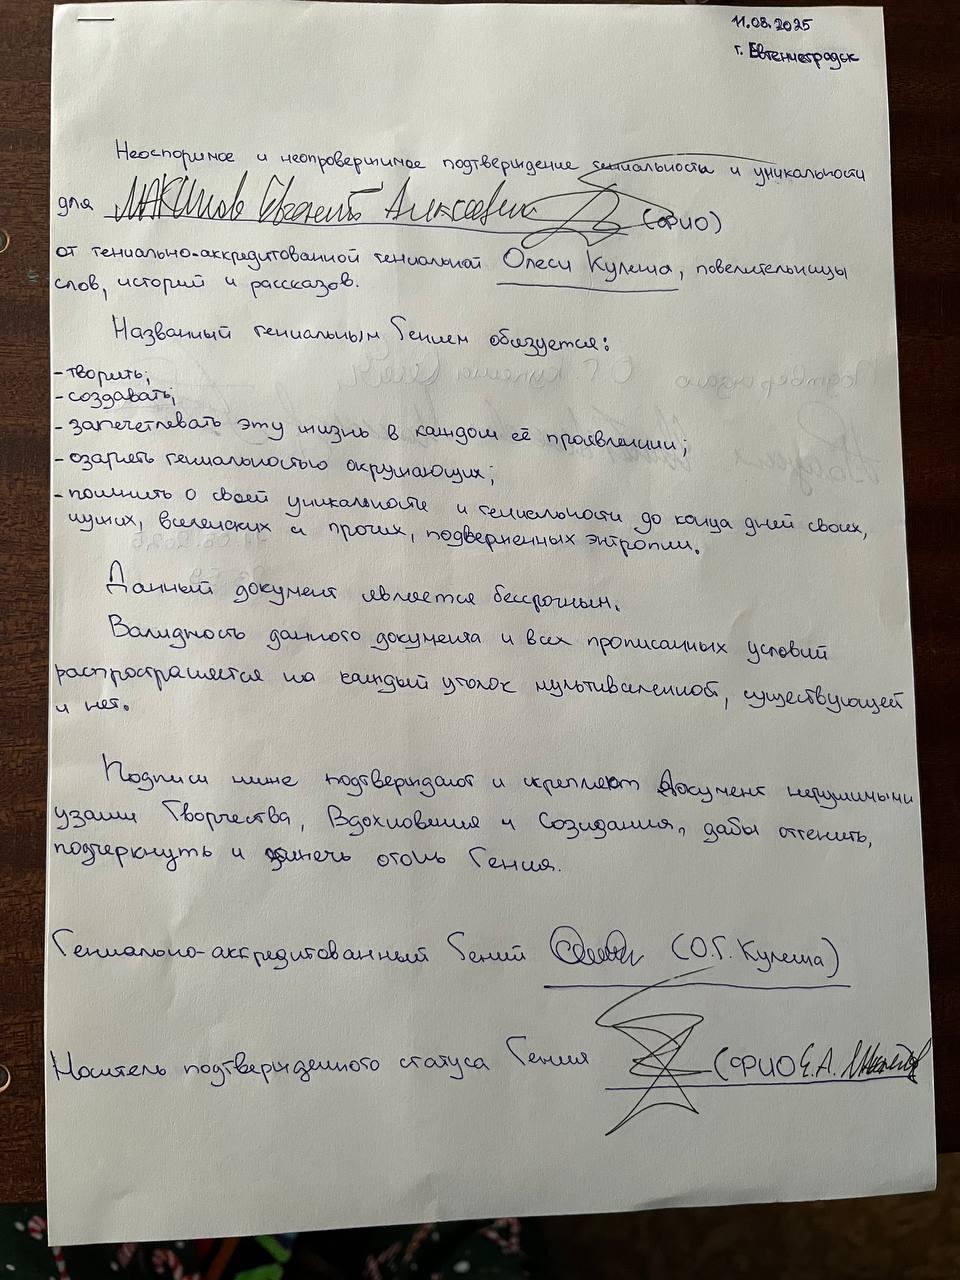 11.08.2025
г. Евгениеградск
Неоспоримое и неопровержимое подтверждение гениальности и уникальности
для Евгений Алексеевич (ФИО)
от гениально-аккредитованной гениальной Олеси Кулеша, повелительницы
слов, историй и рассказов.
Названный гениальным Гением обязуется:
- творить;
- создавать;
- запечетлевать эту жизнь в каждом её проявлении;
- озарять гениальностью окружающих;
- помнить о своей уникальности и гениальности до конца дней своих,
чужих, вселенских и прочих, подверженных энтропии.
Данный документ является бессрочным.
Валидность данного документа и всех прописанных условий
распространяется на каждый уголок мультивселенной, существующей
и нет.
Подписи ниже подтверждают и скрепляют Документ нерушимыми
узами Творчества, Вдохновения и Созидания, дабы оттенить,
подчеркнуть и огонь Гения.
Гениально-аккредитованный Гений (О.Г. Кулеша)
Носитель подтвержденного статуса Гения (ФИО Е.А.